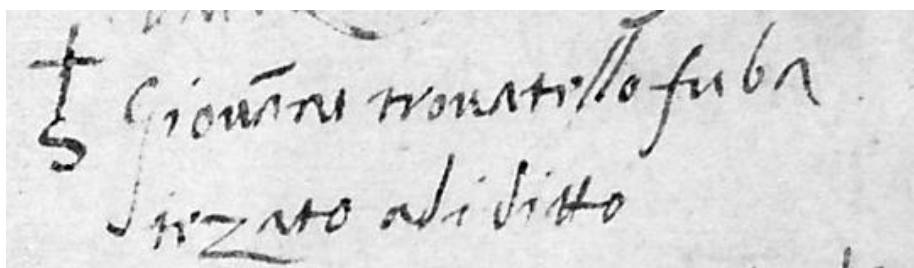 Giovāni trovatello fu ba
tezato adi ditto